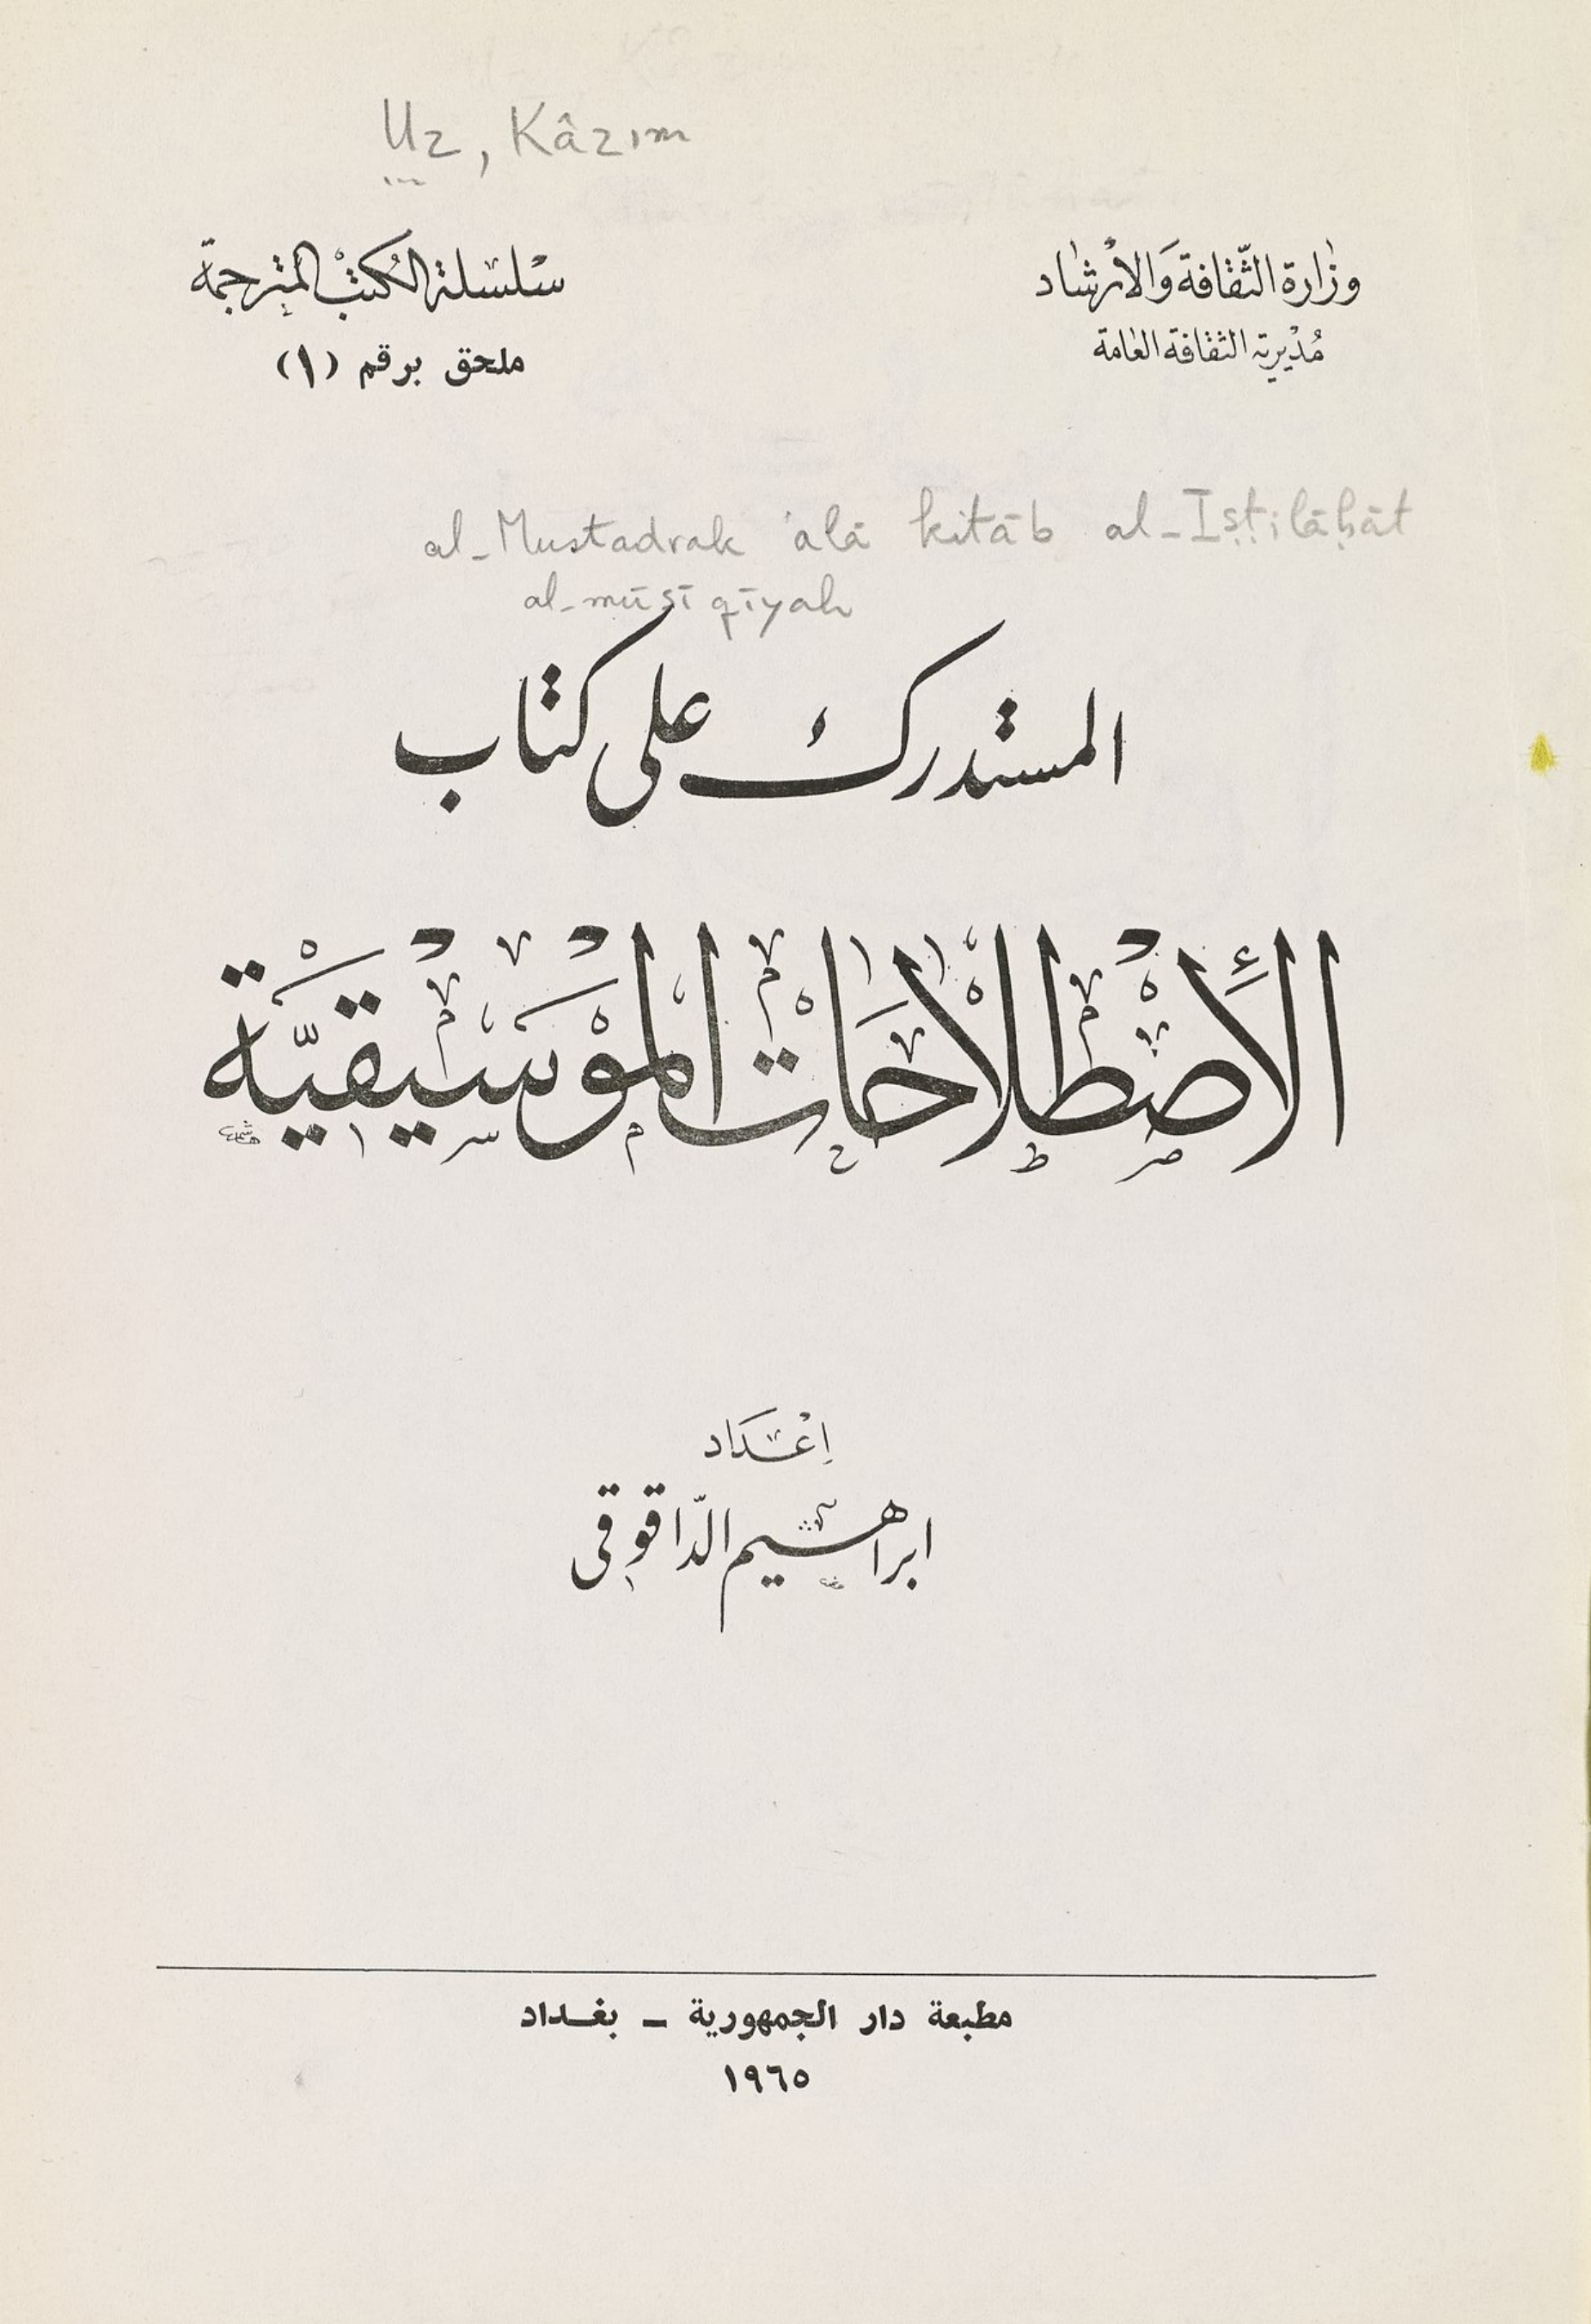 Uz, Kâzım
وزارة الثقافة والارشاد
مديرية الثقافة العامة
سلسلة الكتب المترجمة
ملحق برقم (١)
al-Mustadrak ʿalā kitāb al-Iṣṭilāḥāt
al-mūsīqīyah
المستدرك على كتاب
الأصطلاحات الموسيقية
إعداد
ابراهيم الداقوقي
مطبعة دار الجمهورية – بغـداد
١٩٦٥